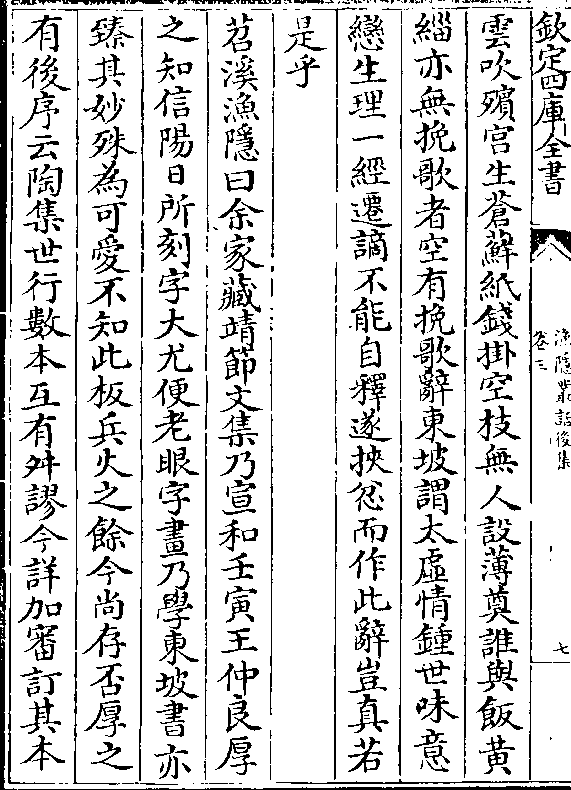 欽定四庫全書
漁隱叢話後集
卷三
七
雲吹殯宮生蒼蘚紙錢掛空枝無人設薄奠誰與飯黃
緇亦無挽歌者空有挽歌辭東坡謂太虛情鍾世味意
戀生理一經遷謫不能自釋遂挾忿而作此辭豈真若
是乎
苕溪漁隱曰余家藏靖節文集乃宣和壬寅王仲良厚
之知信陽日所刻字大尤便老眼字畫乃學東坡書亦
臻其妙殊為可愛不知此板兵火之餘今尚存否厚之
有後序云陶集世行數本互有舛謬今詳加審訂其本